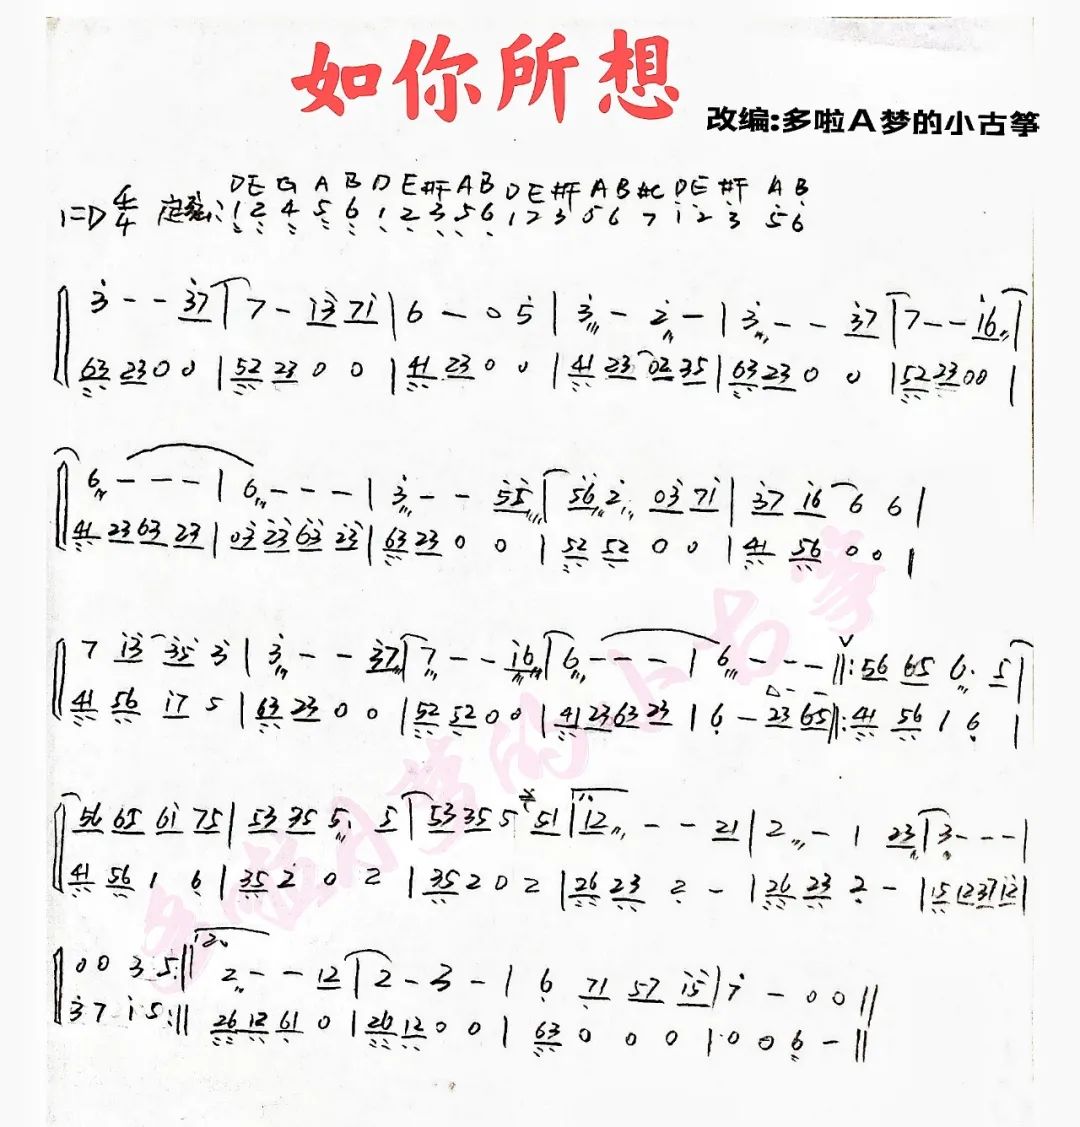 如你所想
改编:多啦A梦的小古筝
DE G A B D E #F A B D E #F A B #C D E #F A B
1=D 4/4 定弦: 1 2 4 5 6 1 2 3 5 6 1 2 3 5 6 7 1 2 3 5 6
3 - - 37 | 7 - 13 71 | 6 - 0 5 | 3 - 2 - | 3 - - 37 | 7 - - 16 |
63 23 0 0 | 52 23 0 0 | 41 23 0 0 | 41 23 02 35 | 63 23 0 0 | 52 23 0 0 |
6 - - - | 6 - - - | 3 - - 55 | 56 2 03 71 | 37 16 6 6 |
41 23 63 23 | 03 23 63 23 | 63 23 0 0 | 52 52 0 0 | 41 56 0 0 |
7 13 35 3 | 3 - - 37 | 7 - - 16 | 6 - - - | 6 - - - ‖: 56 65 6· 5 |
41 56 17 5 | 63 23 0 0 | 52 52 0 0 | 41 23 63 23 | 6 - 23 65 ‖: 41 56 1 6 |
56 65 61 75 | 53 35 5· 5 | 53 35 5 51 | 1. 12 - - 21 | 2 - 1 23 | 3 - - - |
41 56 1 6 | 35 2 0 2 | 35 2 0 2 | 26 23 2 - | 26 23 2 - | 15 12 37 12 |
0 0 3 5 :‖ 2. 2 - - 12 | 2 - 3 - | 6 71 57 15 | 7 - 0 0 ‖
3 7 1 5 :‖ 26 12 61 0 | 26 12 0 0 | 63 0 0 0 | 0 0 6 - ‖
多啦A梦的小古筝